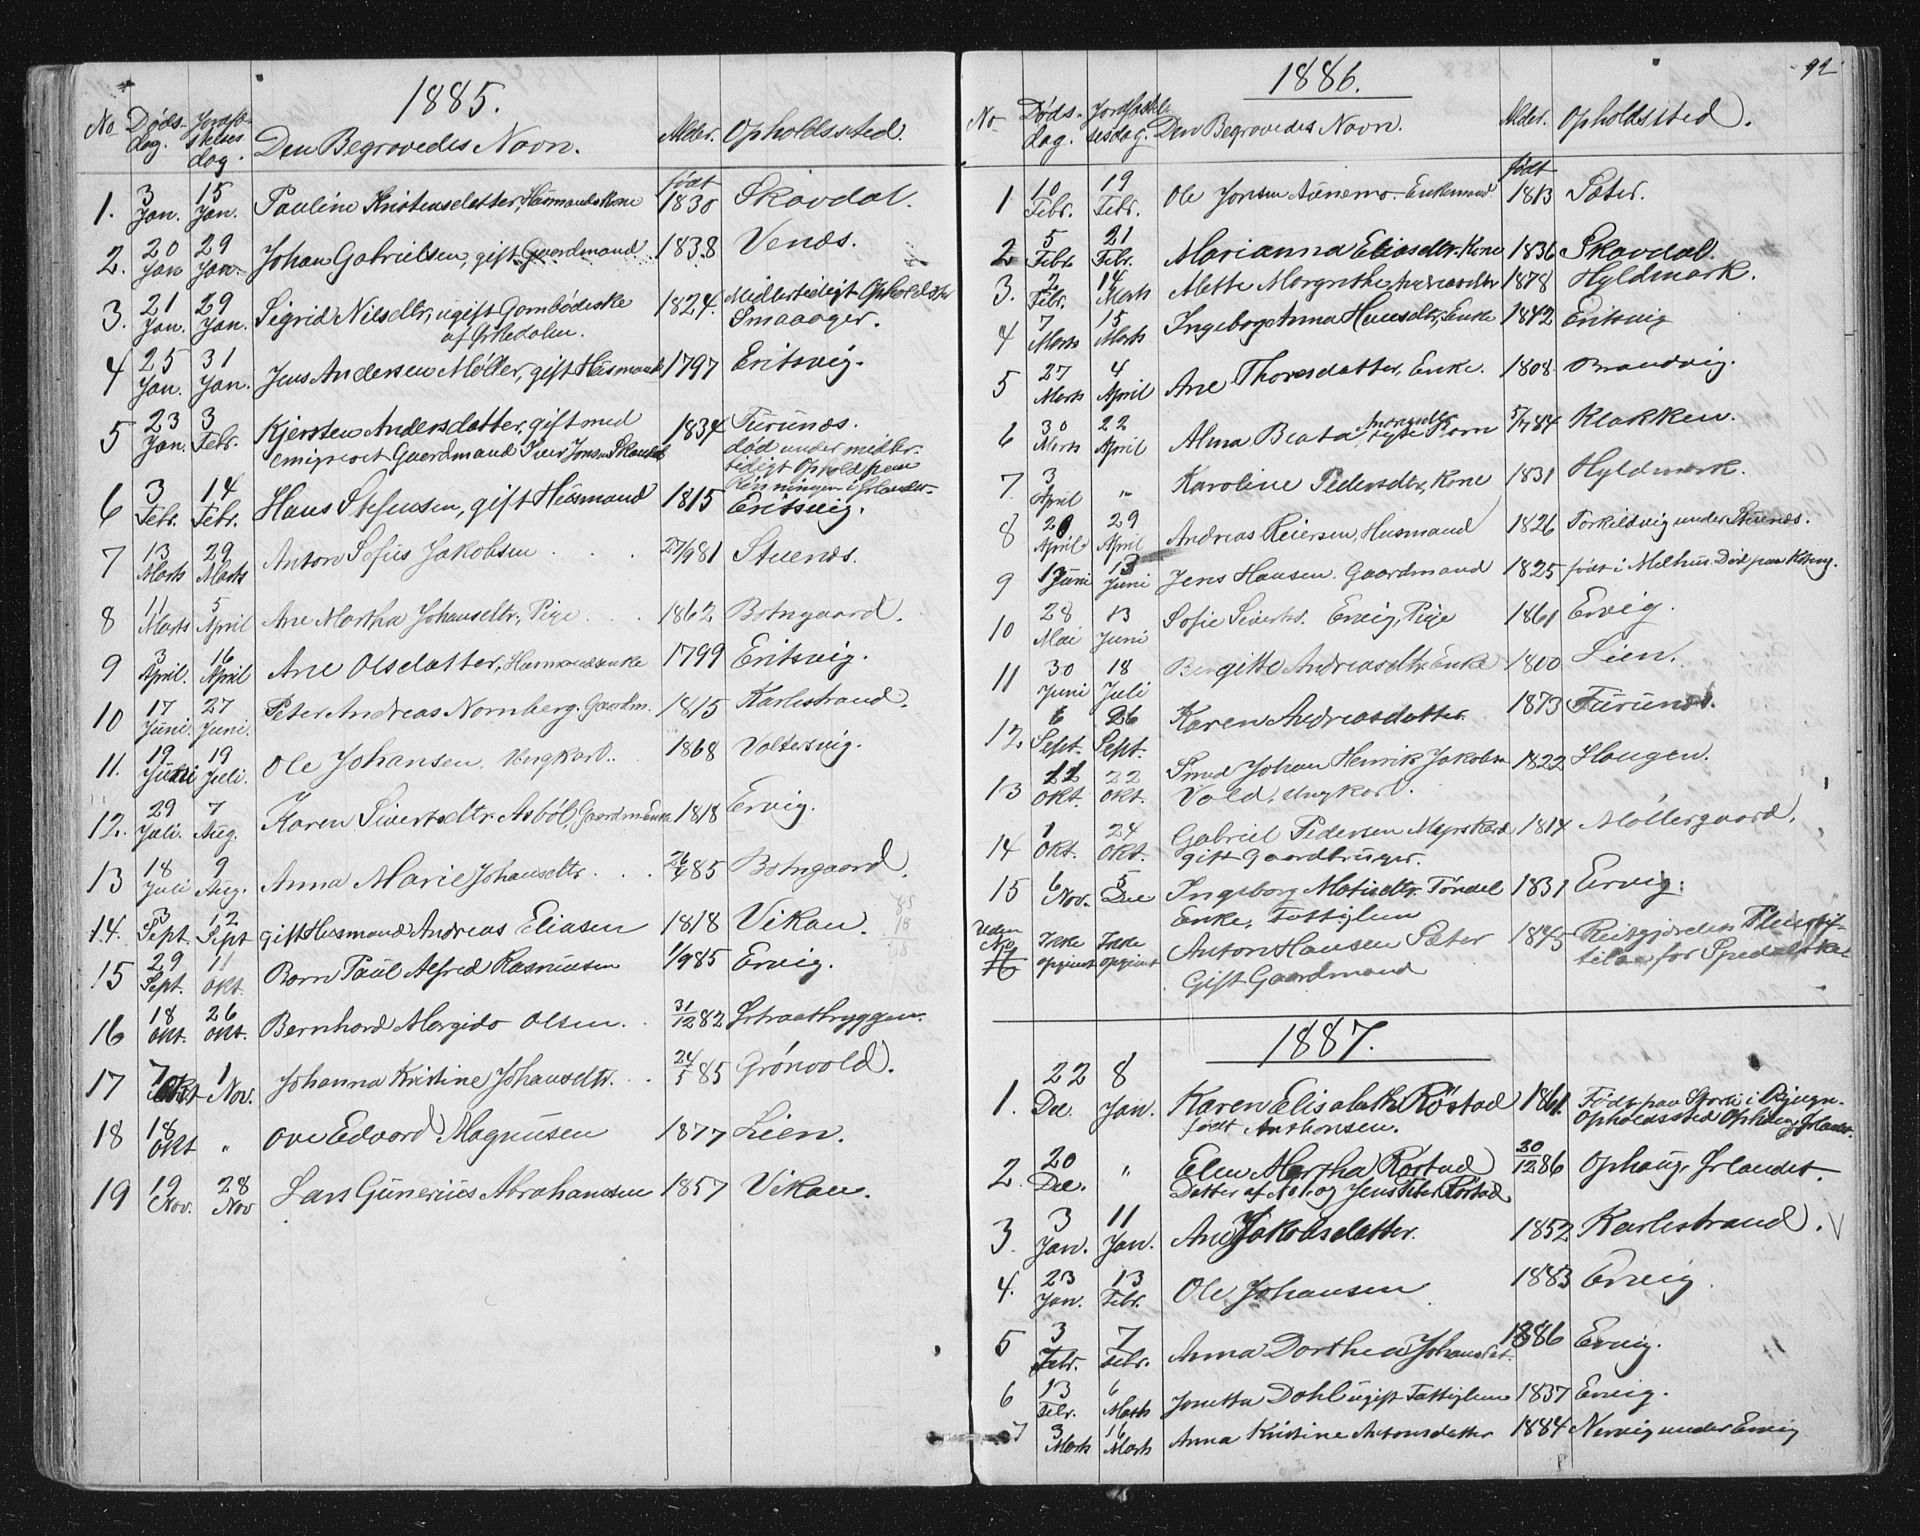 1885.
No Døds- dag. Jordfæ- stelses dag. Den Begravedes Navn. Alder. Opholdssted.
født
1. 3 Jan. 15 Jan. Pauline Kristensdatter, Husmandskone 1830 Skavdal.
2. 20 Jan 29 Jan. Johan Gabrielsen, gift Gaardmand 1838 Venæs.
3. 21 Jan. 29 Jan. Sigrid Nilsdtr, ugift 1824. Midlertidigt Opholdster
af Ørkedalen. Smaaager.
4 25 Jan. 31 Jan. Jens Andersen Møller, gift Husmand 1797 Eritsvig.
5 23 Jan. 3 Febr. Kjersten Andersdatter, gift med 1834 Furunæs.
emigreret Gaardmand Iver Jonsen Skavdal død under midler-
tidigt Ophold paa
i Ørlandet.
6 3 Febr. 14 Febr. Hans Stefensen, gift Husmand 1815 Eritsvig.
7 13 Marts 29 Marts Anton Sofus Jakobsen 27/981 Stuenæs.
8 11 Marts 5 April Ane Martha Johansdtr, Pige 1862 Botngaard.
9 3 April. 16 April Ane Olsdatter, Husmandsenke 1799 Eritsvig.
10 17 Juni. 27 Juni. Peter Andreas Nornberg. Gaardm. 1815 Karlestrand.
11. 19 Juni 19 Juli. Ole Johansen, Ungkarl. 1868 Valtersvig.
12. 29 Juli. 7 Aug. Karen Sivertsdtr. Asböl, Gaardm Enke 1818 Ervig.
13 18 Juli 9 Aug. Anna Marie Johansdtr. 85 Botngaard.
14. 3 Sept. 12 Sept gift Husmand Andreas Eliasen 1818 Vikan.
15 29 Sept. 11 Okt. Barn Paul Alfred Rasmusen 1/985 Ervig.
16 18 Okt. 26 Okt. Bernhard Margido Olsen. 31/12 82
17 7 Okt 1 Nov. Johanna Kristine Johansdtr. 24/5 85 Grönvold.
18 18 Okt " Ove Edvard Magnusen 1877 Lien.
19 19 Nov. 28 Nov Lars Gunerius Abrahamsen 1857 Vikan.
92
1886.
No Døds- dag. Jordfæstel- sesdag. Den Begravedes Navn. Alder. Opholdssted.
født
1 10 Febr. 19 Febr. Ole Jonsen Aunemo. Enkemand 1813 Sæter.
2 5 Febr 21 Febr. Marianna Eliasdtr. Kone 1836 Skavdal.
3. 2 Febr. 14 Marts Mette Margrethe Andreasdtr 1878 Hyldmark.
4 7 Marts 15 Marts Ingeborg Anna Hansdtr, Enke 1842 Eritsvig
5 27 Marts 4 April Ane Thoresdatter, Enke. 1808. Brandvig.
6 30 Marts 22 April Alma Beata Andreasdtr Barn 5/784 Klakken.
7. 3 April " Karoline Pedersdtr, Kone 1831 Hyldmark.
8 20 April 29 April Andreas Reiersen, Husmand 1826 Torkildvig under Stuenæs.
9 13 Juni 13 Juni Jens Hansen. Gaardmand 1825 født i Melhus. Død paa
10 28 Mai 13 Juni Sofie Siverts. Ervig, Pige 1861 Ervig.
11 30 Juni 18 Juli Bergitte Andreasdtr, Enke 1800 Lien.
12. 6 Sept. 26 Sept. Karen Andreasdatter. 1873 Furunæs.
13 22 Okt. 22 Okt. Smed Johan Henrik Jakobsen 1822 Haugen.
Vold, Ungkarl.
14 1 Okt. 24 Okt. Gabriel Pedersen Myrskard 1814 Møllergaard.
gift Gaardbruger.
15 6 Nov. 5 Dec Ingeborg Matisdtr. Töndel 1831 Ervig.
Enke, Fattiglem
Uden No Ikke opgivet Ikke opgivet Anton Hansen Sæter 1845 Reitgjerdets Pleiestif-
Gift Gaardmand telse for Spedalske
1887.
1. 22 Dec. 8 Jan. Karen Elisabeth Röstad 1861. Født paa i
født Anthonsen. Opholdssted Ophaug, Ørlandet.
2. 20 Dec. " Elen Martha Röstad 20/12 86 Ophaug, Ørlandet.
Datter af No 1. og Jens Peter Röstad
3. 3 Jan. 11 Jan. Ane Jakobsdatter. 1852 Karlestrand.
4. 23 Jan. 13 Febr. Ole Johansen 1883 Ervig.
5 3 Febr. 7 Febr. Anna Dorthea Johansdtr. 1886 Ervig.
6 13 Febr. 6 Marts Jonetta Dahl ugift Fattiglem 1837 Ervig.
7 3 Marts 16 Marts Anna Kristine Antonsdatter 1884 Nervig under Ervig